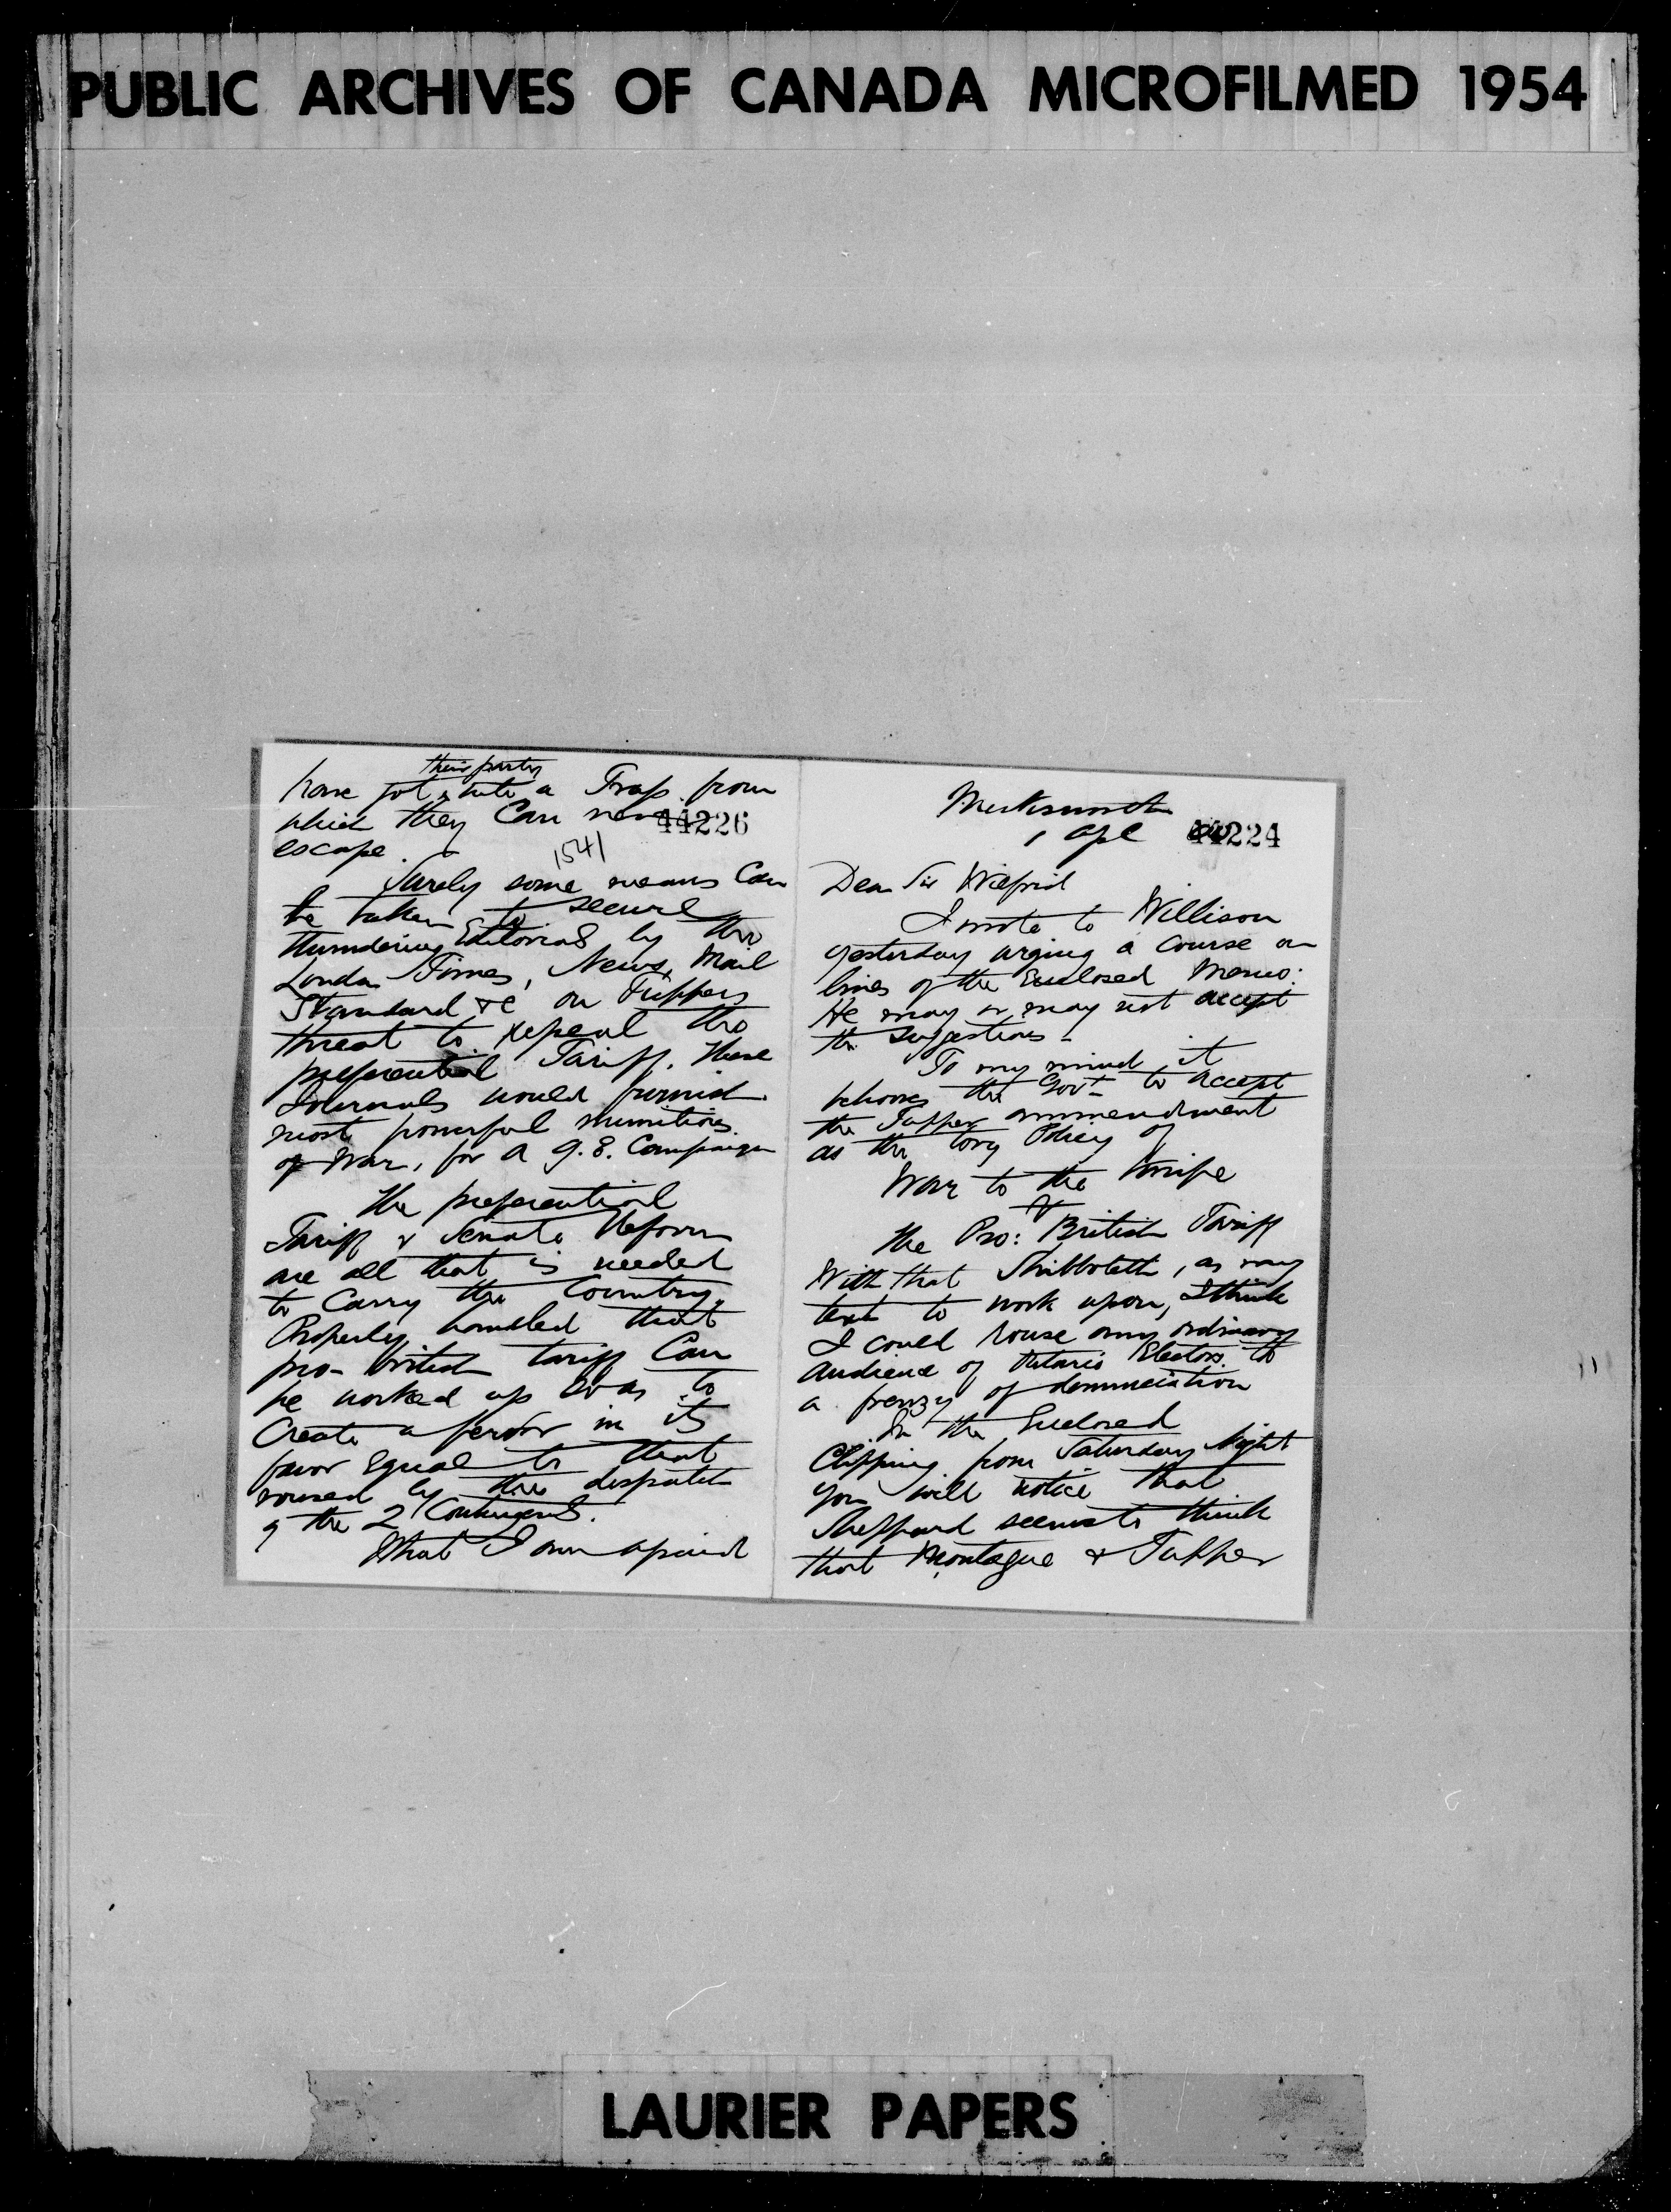 PUBLIC ARCHIVES OF CANADA MICROFILMED 1954
44224
1 Apl
Dear Sir Wilfrid
I wrote to Willison
yesterday urging a course on
lines of the Enclosed Memo:
He may or may not accept
the suggestions -
To my mind it
behooves the Govt to accept
the Tupper ammendment
as the Tory Policy of
War to the Knife
on
the Pro: British Tariff
With that Shibboleth, as my
text to work upon, I think
I could rouse any ordinary
audience of Ontario Electors to
a frenzy of denunciation
In the Enclosed
Clipping from Saturday Night
you will notice that
Sheppard seems to think
that Montague & Tupper
44226
1541
their party
have got into a Trap from
which they Can never
escape.
Surely some means Can
be taken to secure
thundering Editorials by the
London Times, News, Mail
Standard &c on Tuppers
threat to repeal the
preferential Tariff. These
Journals would furnish
most powerful munitions
of War, for a G.E. Campaign
The preferential
Tariff & Senate Reform
are all that is needed
to Carry the Country.
Properly handled that
pro-British tariff Can
be worked up so as to
Create a fervor in its
favor Equal to that
roused by the dispatch
of the 2 Contingents.
What I am afraid
LAURIER PAPERS